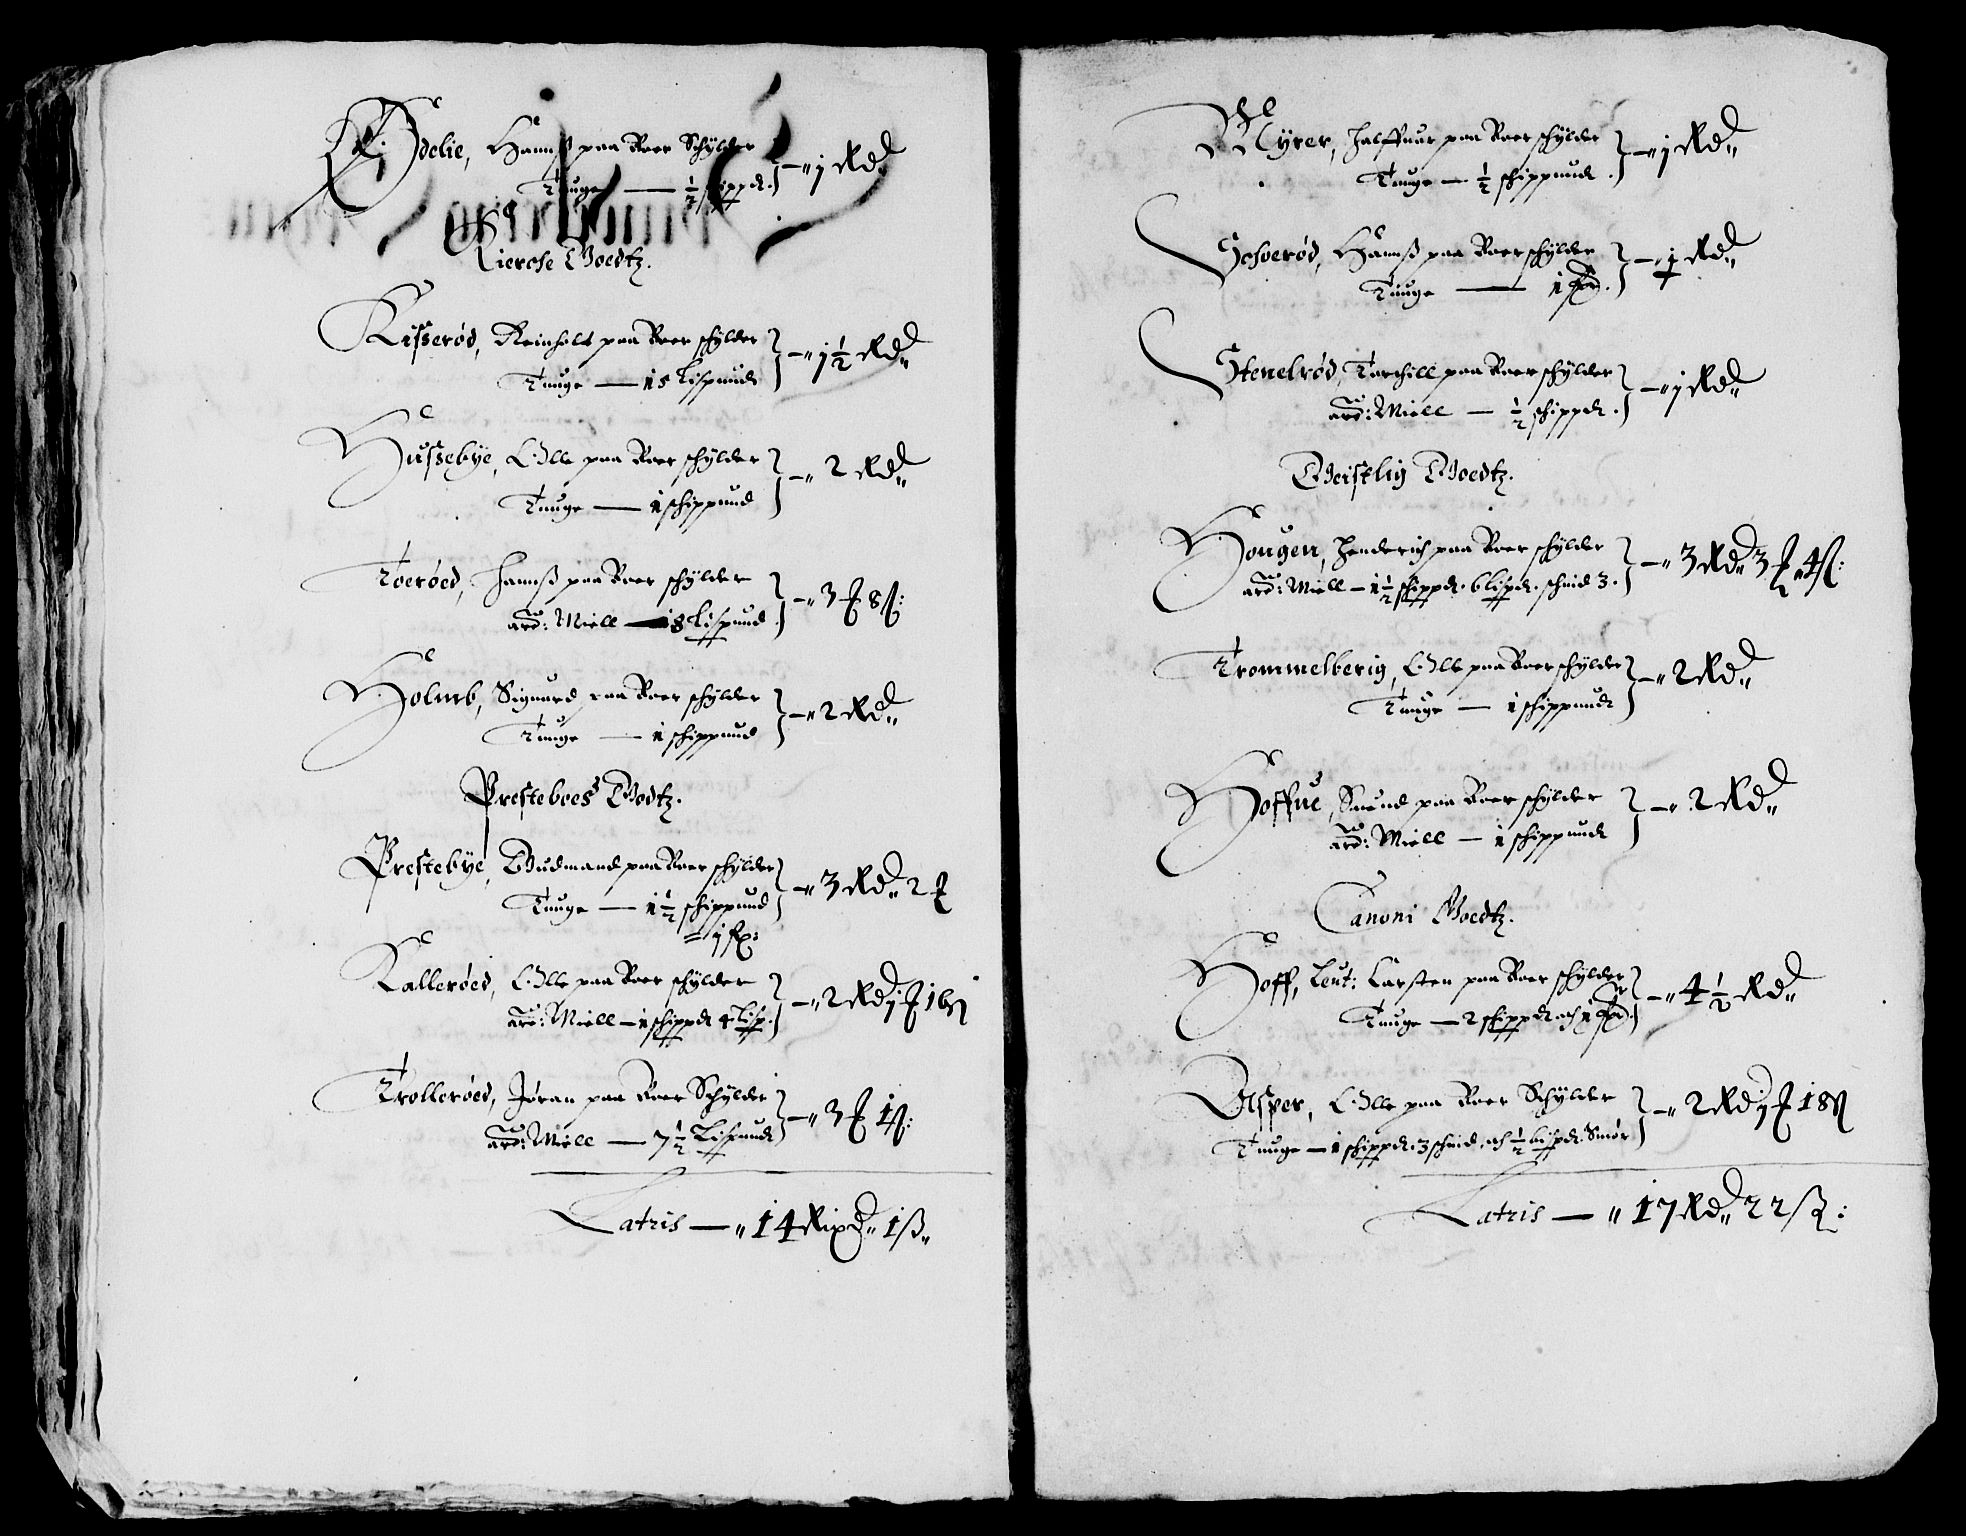 Odelie, Hanns paa Roer Schÿlder
Tunge — ½ schippd. } — „ 1 Rd
Kierche Goedtz.
Kisserød, Reinholt paa Roer schÿlder
Tunge — 15 Lispund } — „ 1½ Rd„
Hussebÿe, Olle paa Roer schÿlder
Tunge — 1 schippund } — „ 2 Rd„
Toerøed, Hannß paa Roer schÿlder
Miell — 18 Lispund } — „ 3 8 ß:
Holmb, Siguurd paa Roer schÿlder
Tunge — 1 schippund } — „ 2 Rd„
Presteboes Godtz.
Prestebÿe, Gudmand paa Roer schÿlder
Tunge — 1½ schippund } — „ 3 Rd„ 2
Kallerøed, Olle paa Roer schÿlder
Miell — 1 schippd 4 Lisp. } — „ 2 Rd 1 16 ß
Trollerøed, Jøran paa Roer Schÿlder
Miell — 7½ Lispund } — „ 3 1 ß:
Latris — „ 14 Rixd„ 1 ß„
Mÿrer, Halffuur paa Roer schÿlder
Tunge — ½ schippund } — „ 1 Rd„
Hannß paa Roer schÿlder
Tunge — 1 } — „ Rd„
Stenelrød, Torchill paa Roer schÿlder
Miell — ½ schippd. } — „ 1 Rd„
Geistlig Goedtz.
Hougen, Henderich paa Roer schÿlder
Miell — 1½ schippd. 6 lispd. schind 3. } — „ 3 Rd„ 3 4 ß:
Trommelberig, Olle paa Roer schÿlder
Tunge — 1 schippund } — „ 2 Rd„
Hoffue, paa Roer schÿlder
Miell — 1 schippund } — „ 2 Rd„
Canoni Goedtz.
Hoff, Leut: Carsten paa Roer schÿlder
Tunge — 2 schippd och 1 } — „ 4½ Rd„
Asper, Olle paa Roer Schÿlder
Tunge — 1 schippd. 3 schind. och ½ bispd. Smør } — „ 2 Rd 1 18 ß
Latris — „ 17 Rd„ 22 ß: